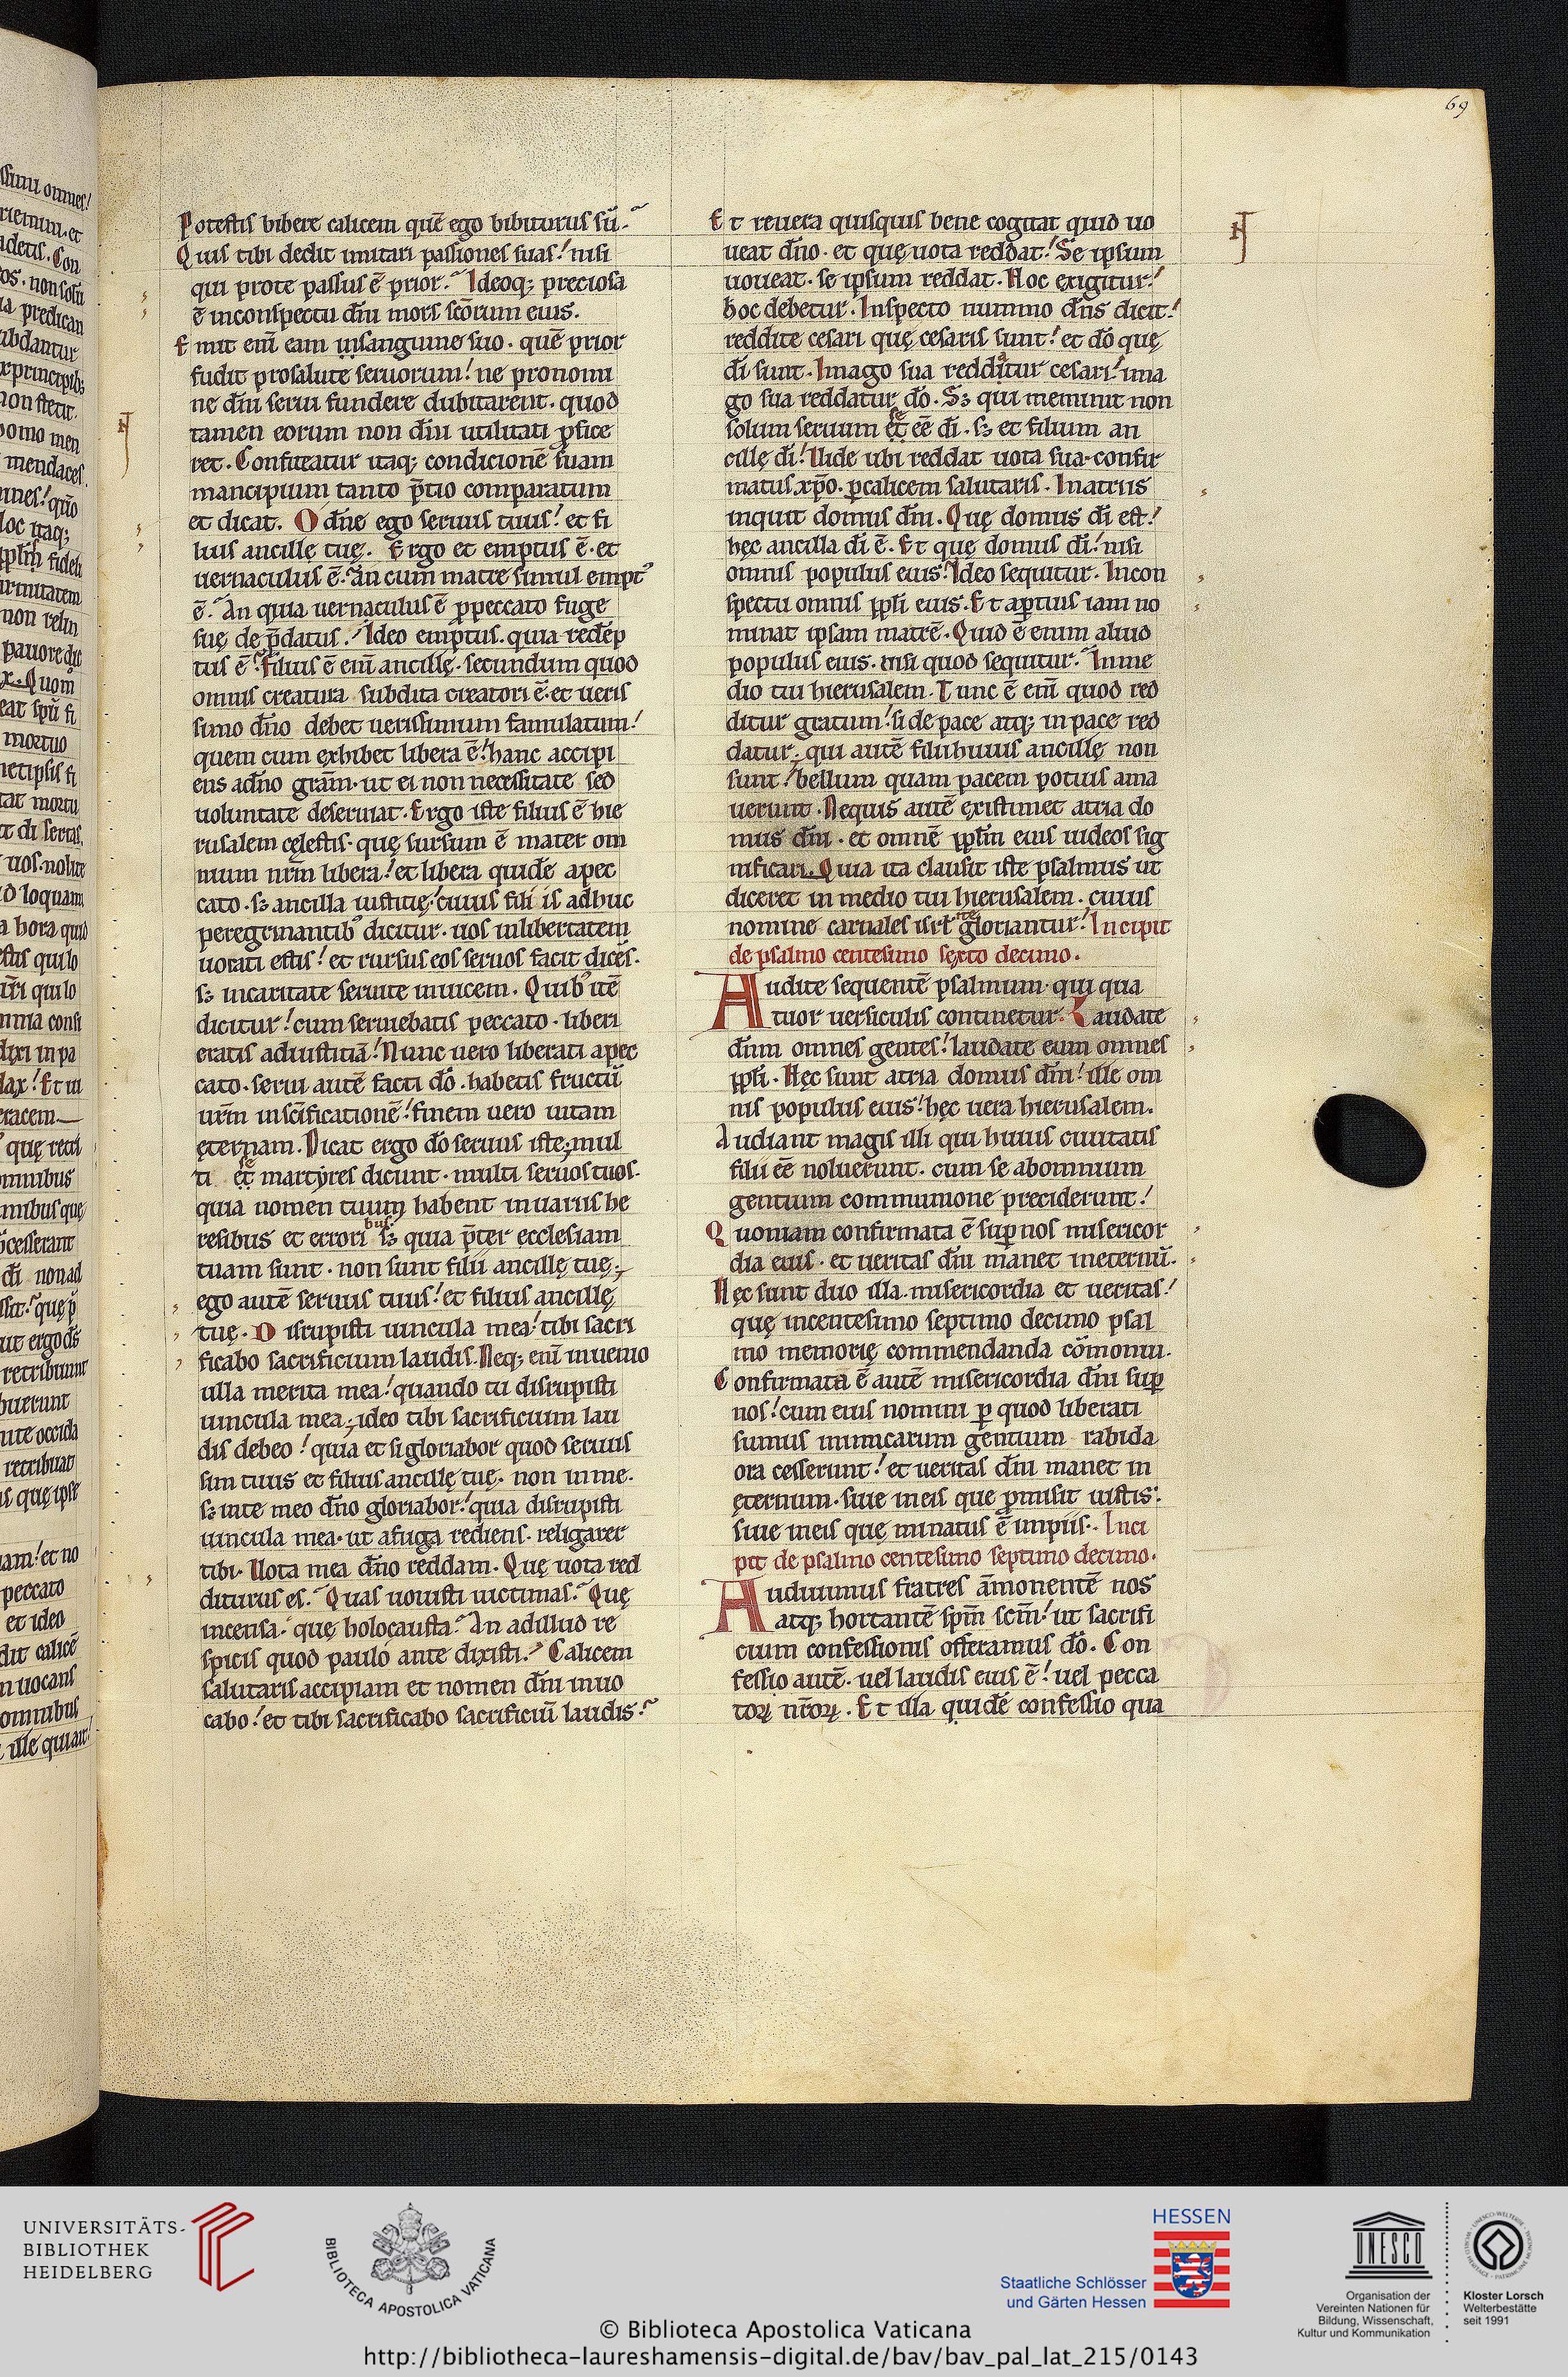 69
Potestis bibere calicem quē ego bibiturus sū.
Quis tibi dedit imitari passiones suas! nisi
qui prote passus ē prior. Ideoq; preciosa
ē inconspectu dn̄i mors scōrum eius.
Emit eni̅ eam insanguine suo. quē prior
fudit prosalute seruorum! ne pronomi
ne dn̄i serui fundere dubitarent. quod
tamen eorum non dn̄i utilitati ꝓfice
ret. Confiteatur itaq; condicionē suam
mancipium tanto p̄tio comparatum
et dicat. O dn̄e ego seruus tuus! et fi
lius ancille tuę. Ergo et emptus ē. et
uernaculus ē. an cum matre simul emptꝰ
ē. An quia uernaculus ē ꝓpeccato fuge
suę de p̄datus. Ideo emptus. quia redēp
tus ē. Filius ē eni̅ ancillę. secundum quod
omnis creatura subdita creatori ē. et ueris
simo dn̄o debet uerissimum famulatum!
quem cum exhibet libera ē! hanc accipi
ens adn̄o grām. ut ei non necessitate sed
uoluntate deseruiat. Ergo iste filius ē hie
rusalem cęlestis. quę sursum ē mater om
nium nr̄m libera! et libera quidē apec
cato. sꝫ ancilla iustitię. cuius fili is adhuc
peregrinantibꝰ dicitur. uos inlibertatem
uorati estis! et rursus eos seruos facit dicēs.
sꝫ incaritate seruite inuicem. Quibꝰ itē
dicitur! cum seruiebatis peccato. liberi
eratis adiustitiā! Nunc uero liberati apec
cato. serui autē facti dō. habetis fructū
ur̄m insc̄ificationē! finem uero uitam
ęternam. Dicat ergo dō seruus iste; mul
ti se et martyres dicunt. multi seruos tuos.
quia nomen tuum habent inuariis he
resibus et errori bus. sꝫ quia p̄ter ecclesiam
tuam sunt. non sunt filii ancillę tuę;
ego autē seruus tuus! et filius ancillę
tuę. Disrupisti uincula mea! tibi sacri
ficabo sacrificium laudis. Neq; eni̅ inuenio
ulla merita mea! quando tu disrupisti
uincula mea; ideo tibi sacrificium lau
dis debeo! quia et si gloriabor quod seruus
sim tuus et filius ancillę tuę. non in me.
sꝫ inte meo dn̄o gloriabor! quia disrupisti
uincula mea. ut afuga rediens. religarer
tibi. Uota mea dn̄o reddam. Quę uota red
diturus es. Quas uouisti uictimas. Quę
incensa. quę holocausta. An adillud re
spicis quod paulo ante dixisti. Calicem
salutaris accipiam et nomen dn̄i inuo
cabo! et tibi sacrificabo sacrificiū laudis.
Et reuera quisquis bene cogitat quid uo
ueat dn̄o. et quę uota reddat! Se ipsum
uoueat. se ipsum reddat. Hoc exigitur!
hoc debetur. Inspecto nummo dn̄s dicit!
reddite cesari quę cesaris sunt! et dō quę
dī sunt. Imago sua redditur cesari! ima
go sua reddatur dō. Sꝫ qui meminit non
solum seruum se et ee̅ dī. sꝫ et filium an
cillę dī! Uide ubi reddat uota sua. confir
matus xp̄o. ꝑcalicem salutaris. Inatriis
inquit domus dn̄i. Quę domus dī est!
hęc ancilla dī ē. Et quę domus dī! nisi
omnis populus eius. Ideo sequitur. Incon
spectu omnis ppl̄i eius. Et aꝑtius iam no
minat ipsam matrē. Quid ē enim aliud
populus eius. nisi quod sequitur. Inme
dio tui hierusalem. Tunc ē eni̅ quod red
ditur gratum! si de pace atq; in pace red
datur. qui autē filii huius ancillę non
sunt! bellum quam pacem potius ama
uerunt. Nequis autē existimet atria do
mus dn̄i. et omnē ppl̄m eius iudeos sig
nificari. Quia ita clausit iste psalmus ut
diceret in medio tui hierusalem. cuius
nomine carnales isrl̄ite gloriantur! Incipit
de psalmo centesimo sexto decimo.
Audite sequentē psalmum. qui qua
tuor uersiculis continetur. Laudate
dn̄m omnes gentes! laudate eum omnes
ppl̄i. Hęc sunt atria domus dn̄i! ille om
nis populus eius! hęc uera hierusalem.
Audiant magis illi qui huius ciuitatis
filii ee̅ noluerunt. cum se abomnium
gentium communione preciderunt!
Quoniam confirmata ē suꝑ nos misericor
dia eius. et ueritas dn̄i manet ineternū.
Hęc sunt duo illa. misericordia et ueritas!
quę incentesimo septimo decimo psal
mo memorię commendanda cōmonui.
Confirmata ē autē misericordia dn̄i suꝑ
nos! cum eius nomini ꝑ quod liberati
sumus inimicarum gentium rabida
ora cesserunt! et ueritas dn̄i manet in
ęternum. siue ineis que ꝓmisit iustis.
siue ineis quę minatus ē impiis. Inci
pit de psalmo centesimo septimo decimo.
Audiuimus fratres āmonentē nos
atq; hortantē spm̄ scm̄! ut sacrifi
cium confessionis offeramus dō. Con
fessio autē. uel laudis eius ē! uel pecca
toꝝ nr̄oꝝ. Et illa quidē confessio qua
UNIVERSITÄTS-
BIBLIOTHEK
HEIDELBERG
BIBLIOTECA APOSTOLICA VATICANA
HESSEN
Staatliche Schlösser
und Gärten Hessen
UNESCO
Organisation der
Vereinten Nationen für
Bildung, Wissenschaft,
Kultur und Kommunikation
Kloster Lorsch
Welterbestätte
seit 1991
© Biblioteca Apostolica Vaticana
http://bibliotheca-laureshamensis-digital.de/bav/bav_pal_lat_215/0143